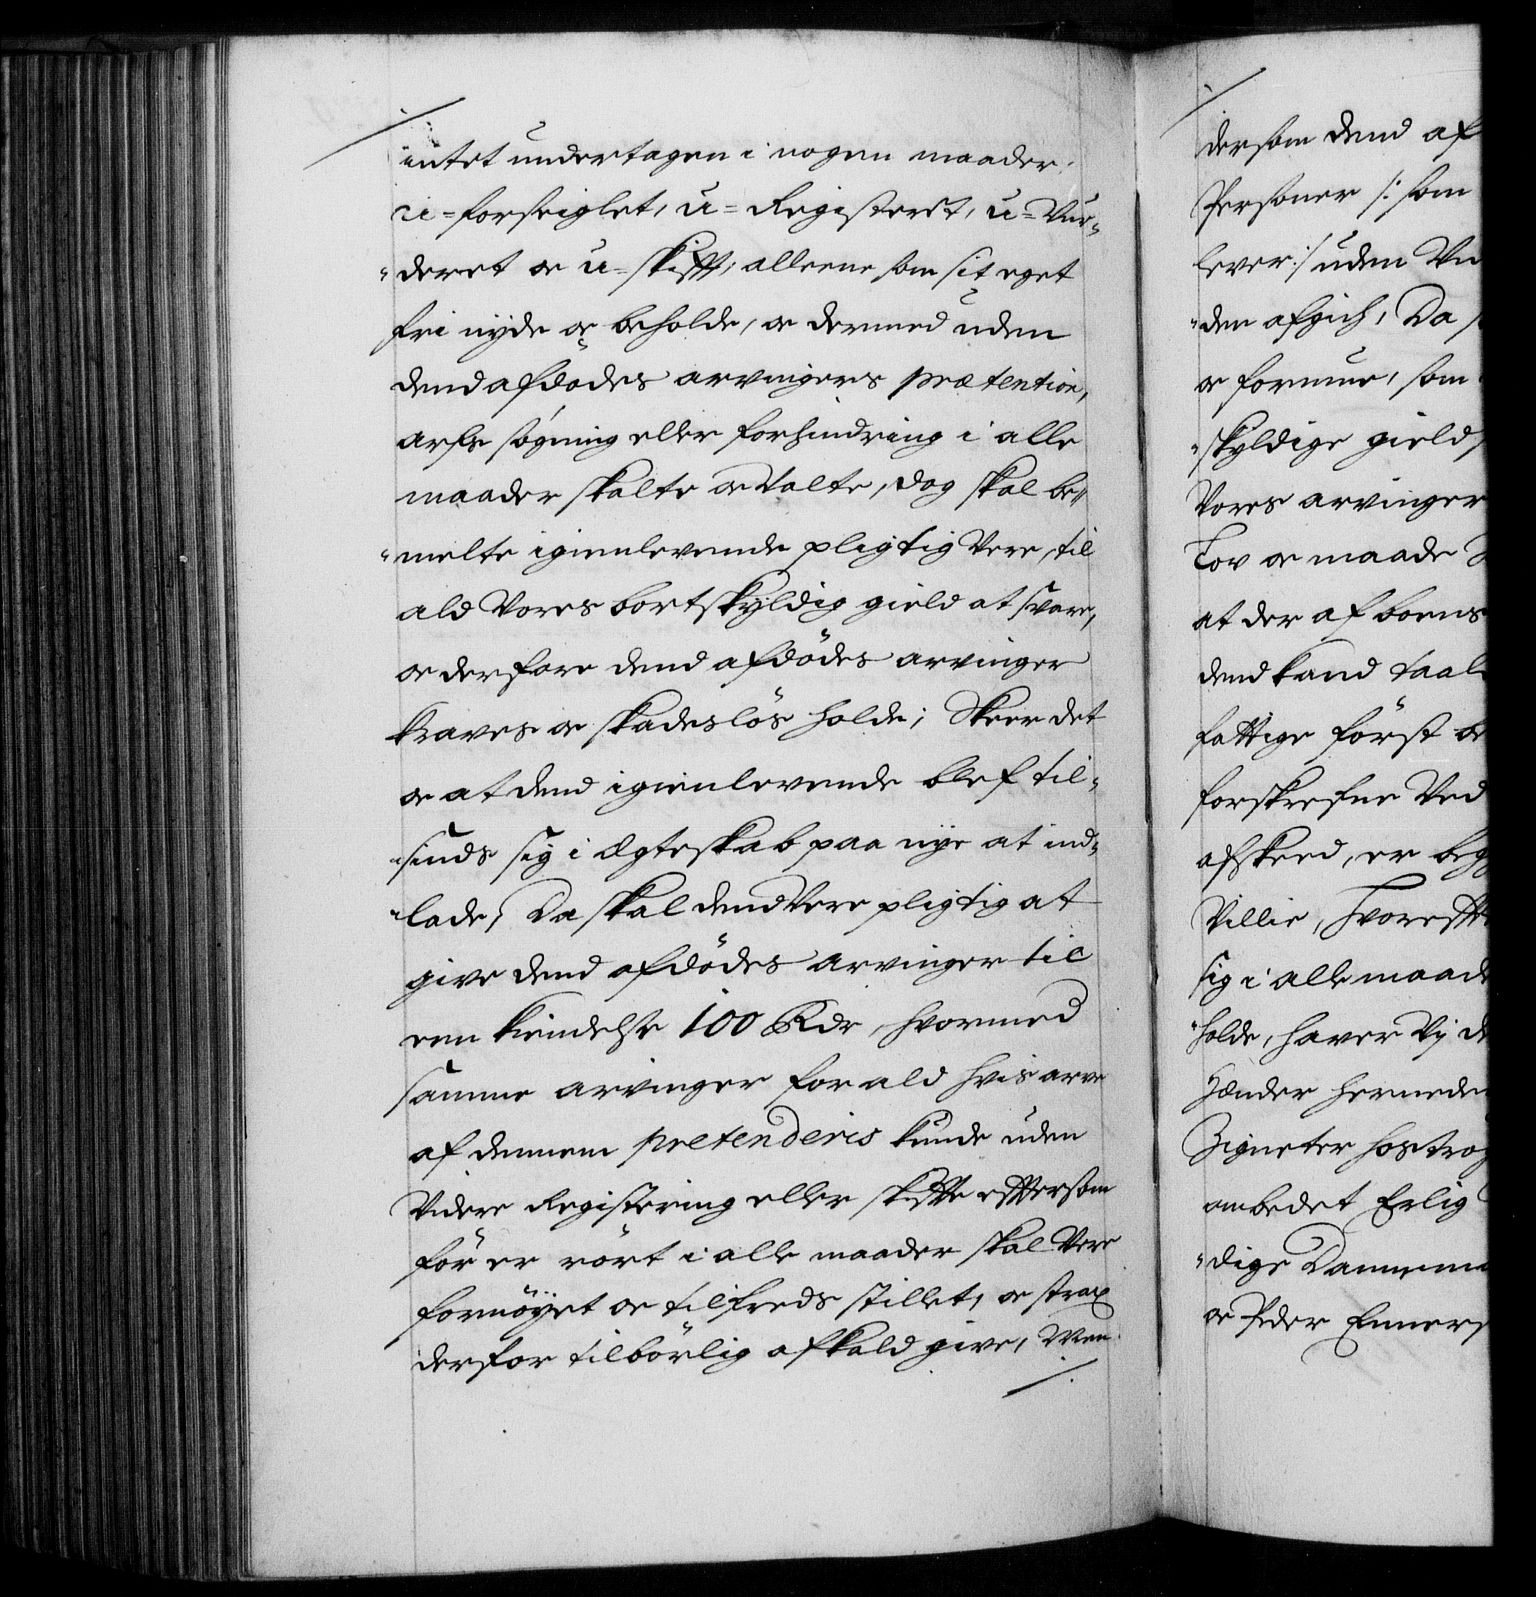 intet undertagen i nogen maader,
u=forseiglet, u=Registeret, u=Vur=
deret oc u=skifft, alleene som sit eget
fri nÿde oc beholde, oc dermed uden
dend afdødes arvingers prætention,
arfs søgning eller forhindring i alle
maader skalte oc Valte, dog skal be=
melte igienlevende pligtig Vere, til
ald Vores bortskÿldig gield at svare,
oc derfore dend afdödes arvinger
kraves oc skadeslös holde; Skeer det
oc at dend igienlevende blef til=
sinds sig i Ægteskab paa nÿe at ind=
lade, Da skal dend Vere pligtig at
give dend afdödes arvinger til
een kiendelse 100 Rdr, hvormed
samme arvinger for ald hvis arve
af dennem pretenderis kunde uden
Videre Registering eller skiffte efftersom
för er rört i alle maader skal Vere
fornöÿet oc tilfreds stillet, oc strax
derfor tilbörlig afkald give, Men
dersom dend af
Personer /: som
lever :/ uden
den afgich, Da
oc formue, som
skÿldige gields
Vores arvinger
Lov oc maade
at der af boens
dend kand taal
fattige först
forskrefne Ved
afskeed, er beg
Villie, hvorefft
sig i alle maade
holde, haver Vÿ
Hænder herneden
Zigneter hostrøg
ombedet Erlig
dige Dannem
oc Peder Enners